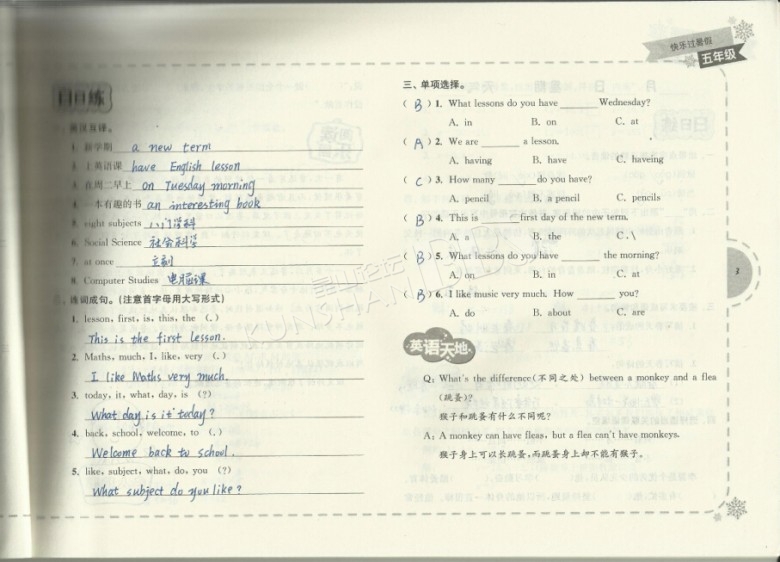 快乐过暑假
五年级
日日练
一、英汉互译。
1. 新学期 a new term
2. 上英语课 have English lesson
3. 在周二早上 on Tuesday morning
4. 一本有趣的书 an interesting book
5. eight subjects 八门学科
6. Social Science 社会科学
7. at once 立刻
8. Computer Studies 电脑课
二、连词成句。(注意首字母用大写形式)
1. lesson, first, is, this, the (.)
This is the first lesson.
2. Maths, much, I, like, very (.)
I like Maths very much.
3. today, it, what, day, is (?)
What day is it today?
4. back, school, welcome, to (.)
Welcome back to school.
5. like, subject, what, do, you (?)
What subject do you like?
三、单项选择。
( B ) 1. What lessons do you have ______ Wednesday?
A. in B. on C. at
( A ) 2. We are ______ a lesson.
A. having B. have C. haveing
( C ) 3. How many ______ do you have?
A. pencil B. a pencil C. pencils
( B ) 4. This is ______ first day of the new term.
A. a B. the C. \
( B ) 5. What lessons do you have ______ the morning?
A. on B. in C. at
( B ) 6. I like music very much. How ______ you?
A. do B. about C. are
英语天地
Q: What's the difference(不同之处) between a monkey and a flea
(跳蚤)?
猴子和跳蚤有什么不同呢?
A: A monkey can have fleas, but a flea can't have monkeys.
猴子身上可以长跳蚤,而跳蚤身上却不能有猴子。
3